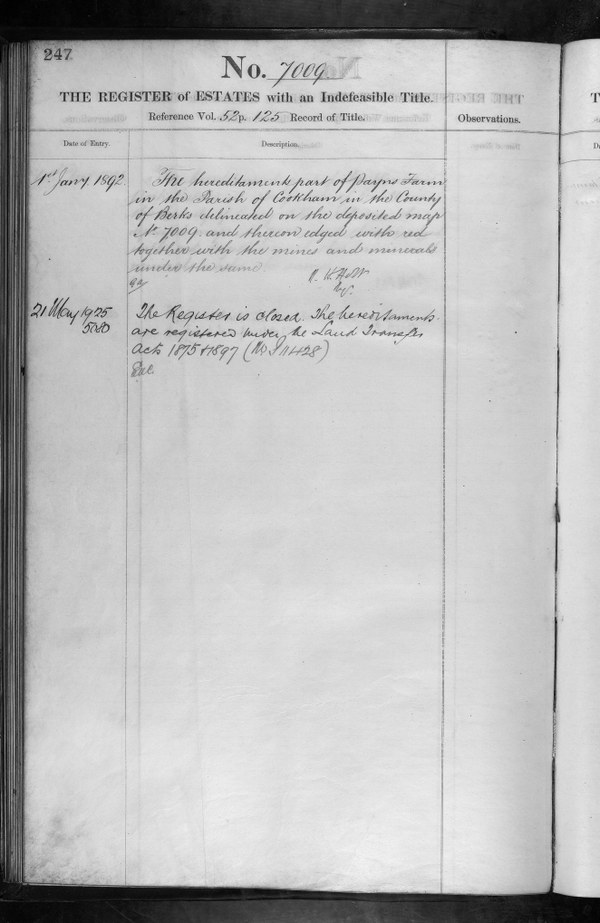 247
No. 7009
THE REGISTER of ESTATES with an Indefeasible Title.
Reference Vol. 52 p. 125 Record of Title.
Observations.
Date of Entry.
Description.
1st Jany 1892
The hereditaments part of Farm
in the Parish of Cookham in the County
of Berks delineated on the deposited map
No 7009 and thereon edged with red
together with the mines and minerals
under the same
21 May 1925
5080
The Register is closed. The hereditaments
are registered under the Land Transfer
Acts 1875 & 1897